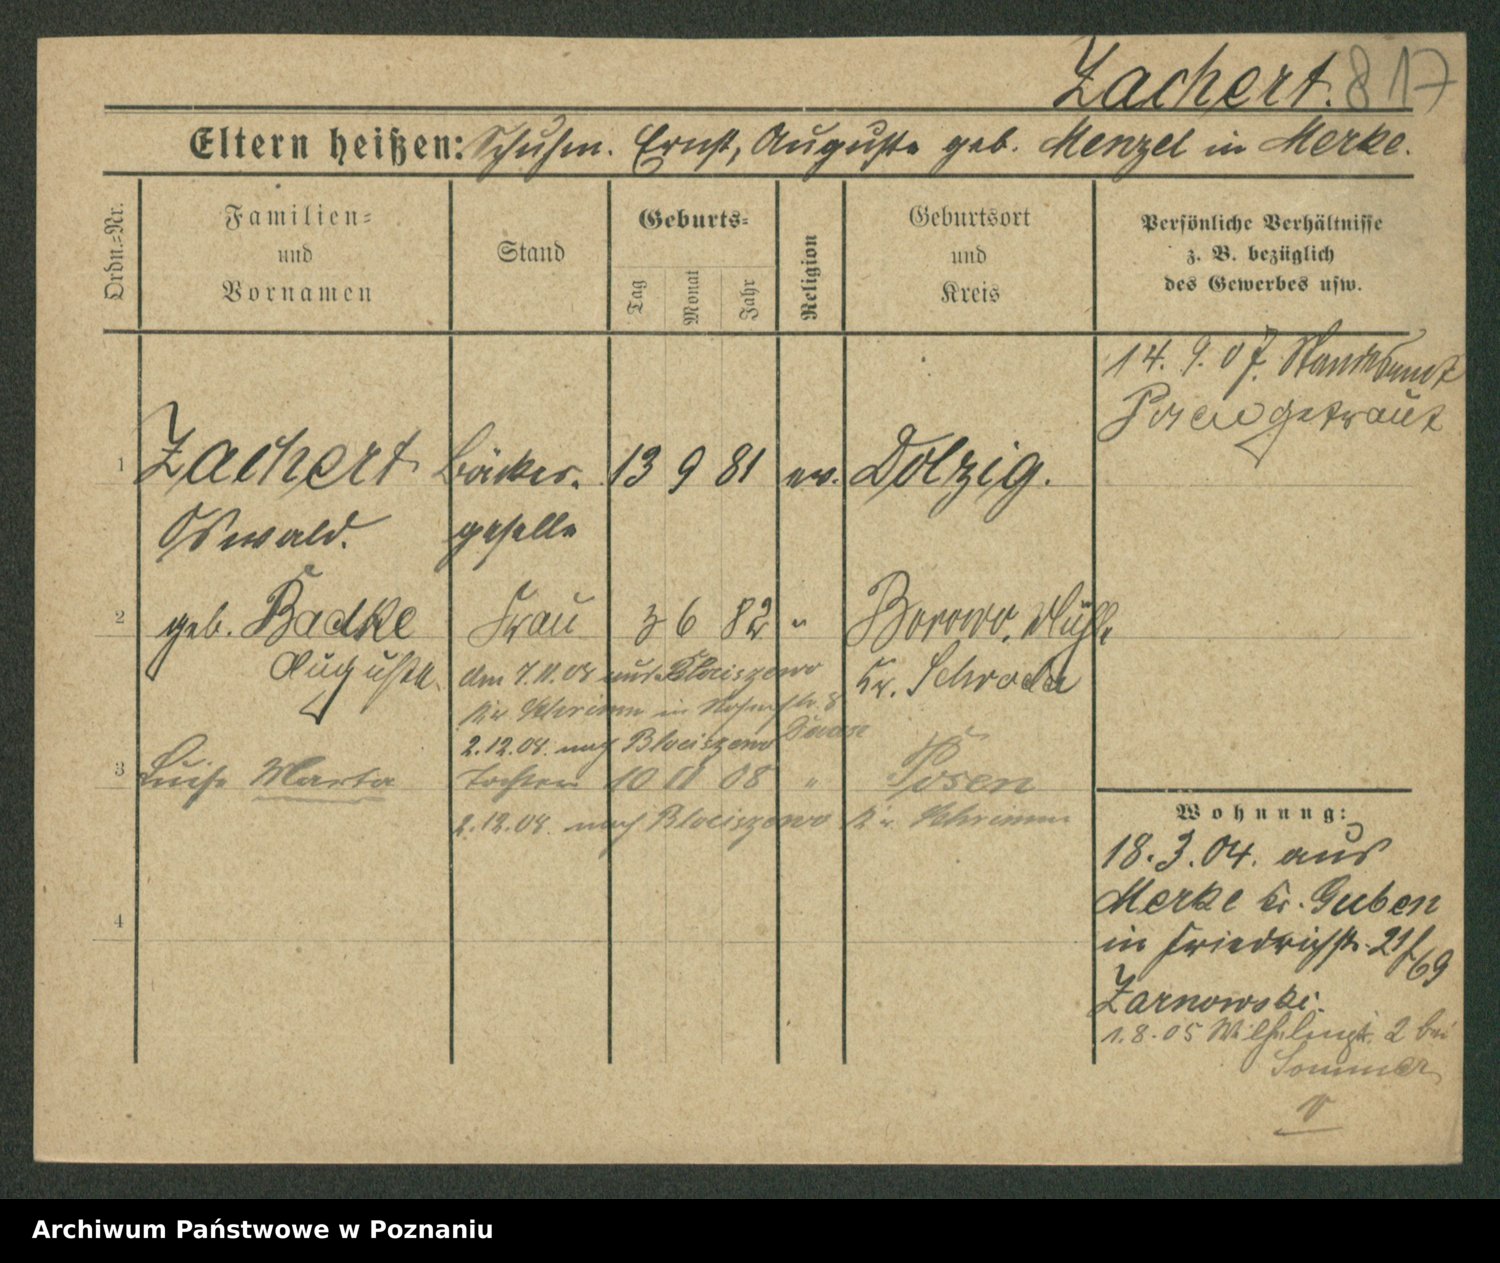 Zachert. 817
Eltern heißen: Schuhm. Ernst, Auguste geb. Menzel in Merke.
Ordn.=Nr.
Familien=
und
Vornamen
Stand
Geburts=
Tag
Monat
Jahr
Religion
Geburtsort
und
Kreis
Persönliche Verhältnisse
z. B. bezüglich
des Gewerbes usw.
14. 9. 07. Standesamt
Posen getraut
1 Zachert Bäcker- 13 9 81 ev. Dolzig.
Oswald. geselle
2 geb. Badke Frau 3 6 82 " Borowo, Mühle
Auguste. Kr. Schroda
den 7.11.08 aus Blociszewo
Kr Schrimm in
2.12.08. nach Blociszewo
3 Luise Marta Tochter 10 11 08 " Posen
2.12.08. nach Blociszewo Kr. Schrimm
4
Wohnung:
18.3.04. aus
Merke Kr. Guben
in Friedrichstr. 21/69
Zarnowski.
1.8.05 2 bei
Sommer
Archiwum Państwowe w Poznaniu